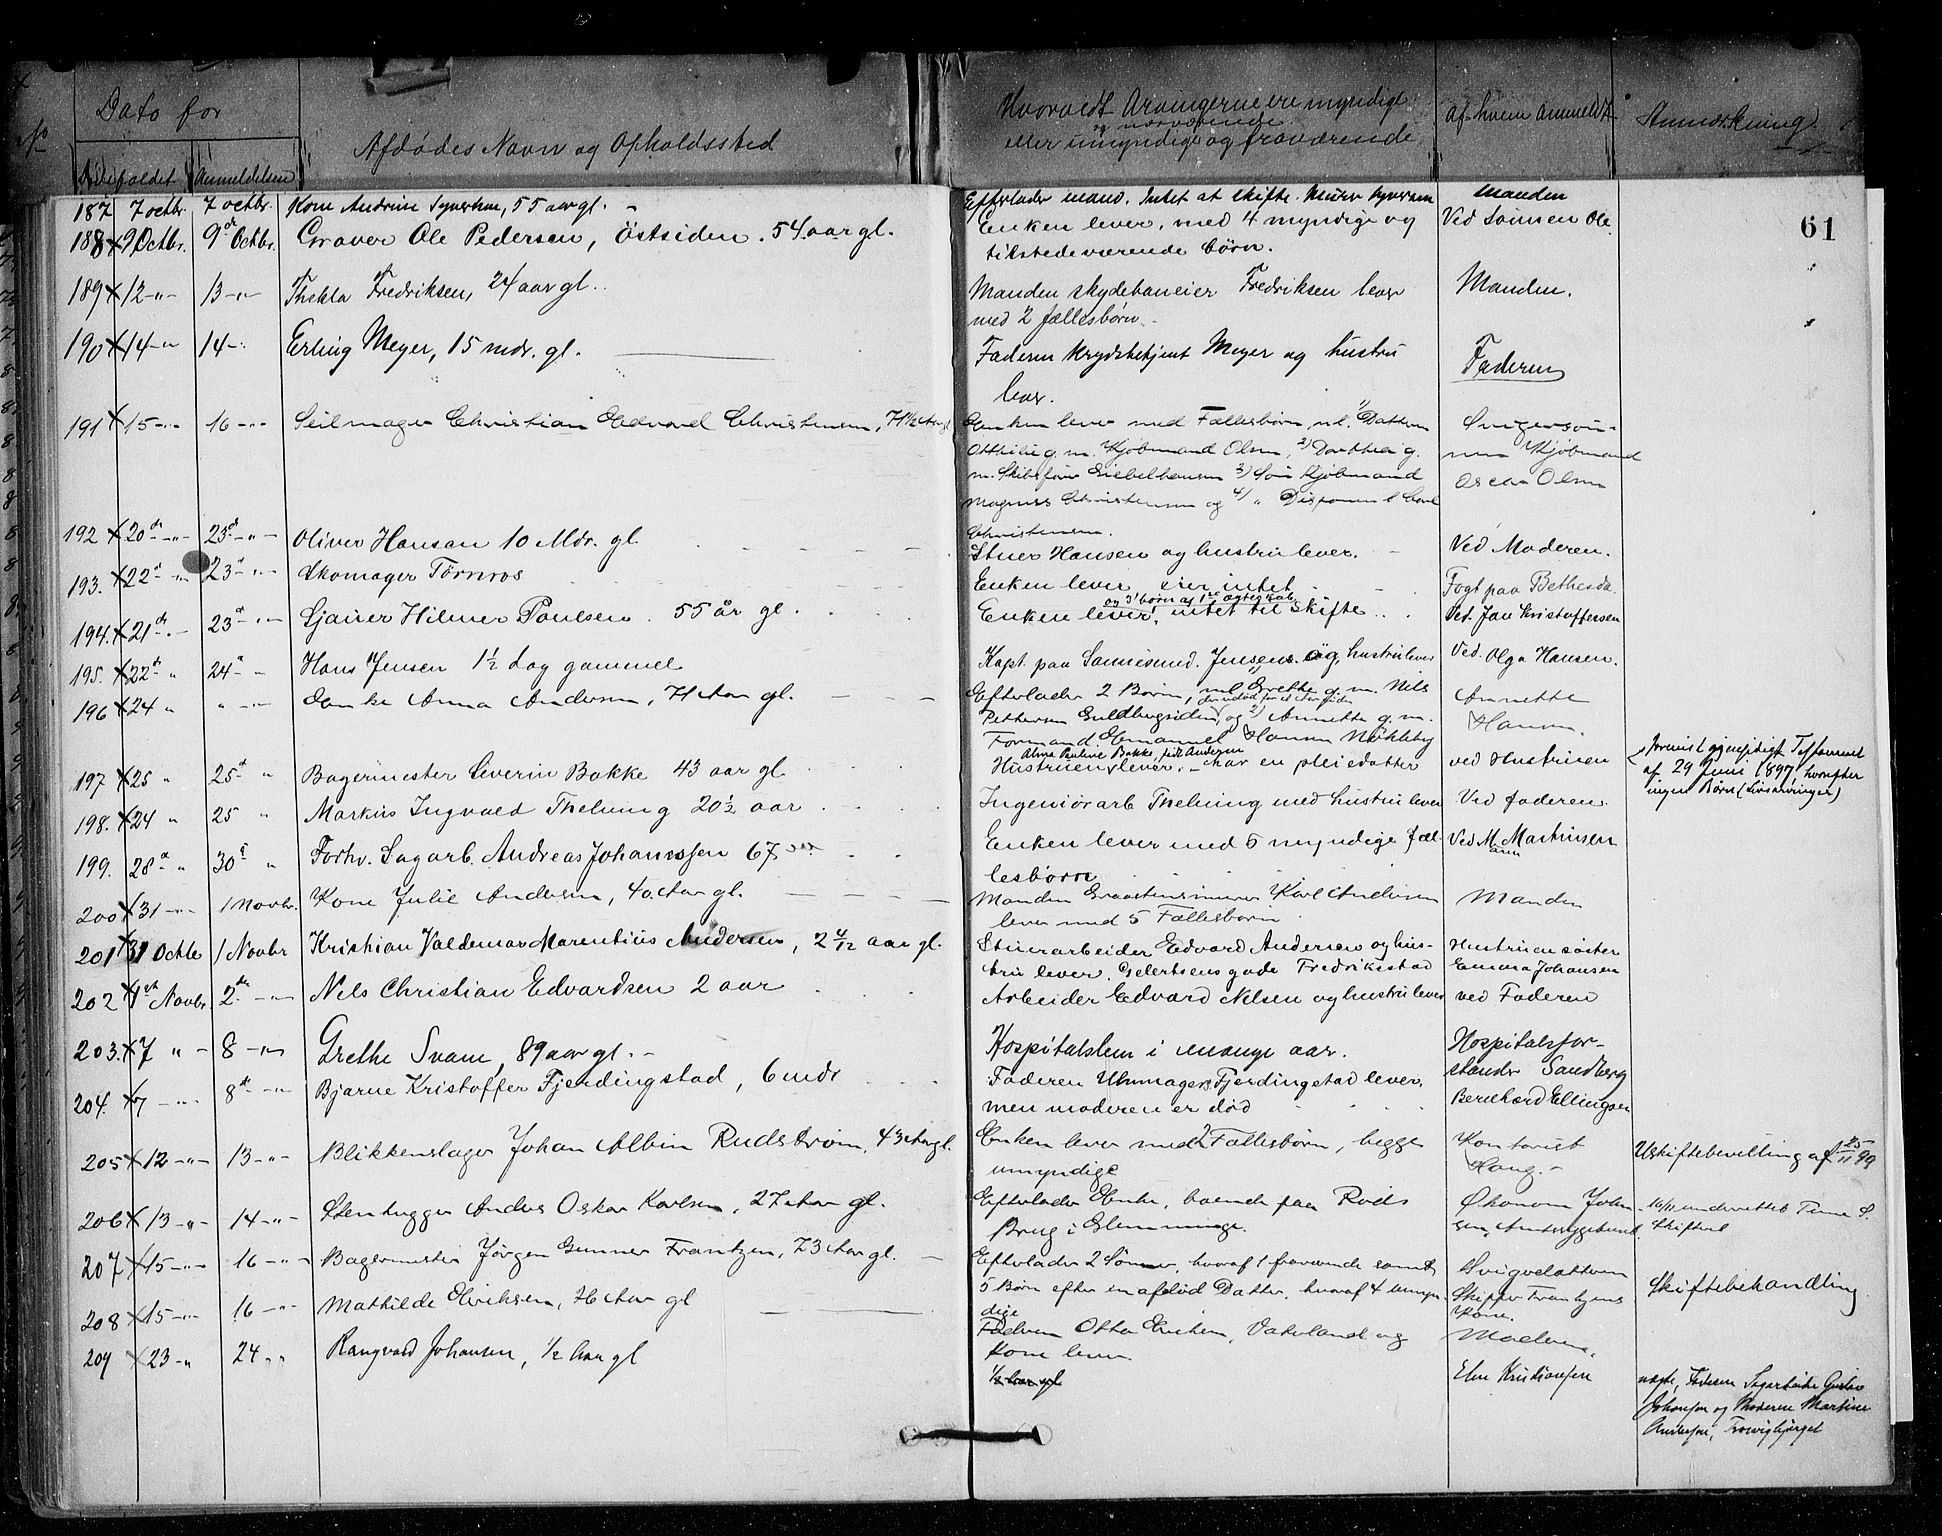 No
Dato for
Dödsfaldet
Anmeldelsen
Afdødes Navn og Opholdssted
Hvorvidt Arvingerne ere myndige
og nærværende
eller umyndige og fraværende
af hvem anmeldt
Anmærkning
61
187 7 octbr. 7 octbr. Kone Andrine 55 aar gl. Efterlader mand. Intet at skifte. Manden
188 × 9 Octbr. 9de Octbr. Graver Ole Pedersen, Östsiden. 54 aar gl. Enken lever, med 4 myndige og Ved Sönnen Ole
tilstedeværende börn.
189 × 12 -"- 13 -"- Thekla Fredriksen, 24 aar gl. Manden skydebaneeier Fredriksen lever Manden.
med 2 fællesbørn.
190 × 14 -"- 14 -"- Erling Meyer, 15 mdr. gl. Faderen Krydsbetjent Meyer og hustru Faderen
lever.
191 × 15 -"- 16 -"- Seilmager Christian Edvard Christensen, 71½ Aar gl Enken lever med Fællesbörn, nl. 1) Datteren Svigersøn-
Ottilie g. m. Kjöbmand Olsen, 2) Dorthea g. nen Kjöbmand
m. Skibsfører 3) Søn Kjöbmand Oscar Olsen
Magnus Christensen og 4) " Disponent Carl
Christensen.
192 × 20de -"- 23de -"- Oliver Hansen 10 Mdr. gl. Stuer Hansen og hustru lever. Ved Moderen.
193. × 22de -"- 23de -"- Skomager Törnros Enken lever, eier intet Fogt paa Bethesda.
194. × 21de -"- 23de -"- Hilmer Poulsen. 55 år gl. Enken lever, intet til skifte Ved. Jan Kristoffersen
og 3 börn af 1ste ægteskab
195. × 22de " 24de " Hans Jensen 1½ dag gammel Kapt. paa Jensen og hustru lever Ved. Olga Hansen.
196 × 24 " " -"- Enke Anna Andersen, 71 Aar gl. Efterlader 2 Börn, nl. 1) Grethe g. m. Nils Annette
Pettersen og 2) Annette g. m. Hansen.
Formand Emanuel Hansen Nökleby
197 × 25 " 25de " Bagermester Severin Bakke 43 aar gl. Hustruen lever. - har en pleiedatter ved Hustruen
Alma Pauline Bakke, född Andersen
gjensidigt Testament
af 29 Juni 1897, hvorefter
ingen Børn (Livsarvinger)
198. × 24 " 25 " Markus Ingvald Thelning 20½ aar Ingeniörarb Thelning med hustru lever Ved faderen.
199. 28de " 30te " Forhv. Sagarb. Andreas Johanssen 67 aar Enken lever med 5 myndige fæl- Ved M. Martinsen
lesbörn
200 × 31 -"- 1 Novbr. Kone Julie Andersen, 40 Aar gl. Manden Graastensmurer Karl Andersen Manden
lever med 5 Fællesbörn
201 × 31 Octbr 1 Novbr Kristian Valdemar Marentius Andersen, 2 4/12 aar gl. Stuerarbeider Edvard Andersen og hus- Hustruens söster
tru lever. Gelertsensgade Fredrikstad Emma Johansen
202 × 1st Novbr. 2de -"- Nils Christian Edvardsen 2 aar Arbeider Edvard Nilsen og hustru lever ved Faderen
203. × 7 " - 8 -"- Grethe Svane, 89 aar gl. - Hospitalslem i mange aar. Hospitalsfor-
stander Sandberg
204. × 7 -"- 8de -"- Bjarne Kristoffer Fjerdingstad, 6 mdr Faderen Uhrmager Fjerdingstad lever, Bernhard Ellingsen
men moderen er död
205 × 12 -"- 13 -"- Blikkenslager Johan Albin Rudström, 43 Aar gl. Enken lever med 2 Fællesbörn, begge Kontorist Uskiftebevilling af 25/11 99
umyndige Haug. -
206 × 13 -"- 14 -"- Stenhugger Anders Oskar Karlsen, 27 Aar gl. Efterlader Enke, boende paa Rods Økonom Johan- 16/11 underrettet
Brug i Glemminge. sen, Amtssygehuset. Skifteret
207 × 15 -"- 16 -"- Bagermester Jörgen Gunner Frantzen, 73 Aar gl. Efterlader 2 Sönner, hvoraf 1 fraværende samt Svigerdatteren
5 Börn efter en afdöd Datter, hvoraf 4 umyn- Skipper Frantzens Skiftebehandling
dige Kone.
208 × 15 -"- 16 -"- Mathilde Eriksen, Aar gl Faderen Otto Eriksen, Vaterland og Moderen.
Kone lever.
209 × 23 -"- 24 -"- Rangvald Johansen, ½ Aar gl ½ Aar gl Else Kristiansen
uægte, Faderen Sagarbeider Gustav
Johansen og Moderen Martine
Andersen, Trosvigbjerget